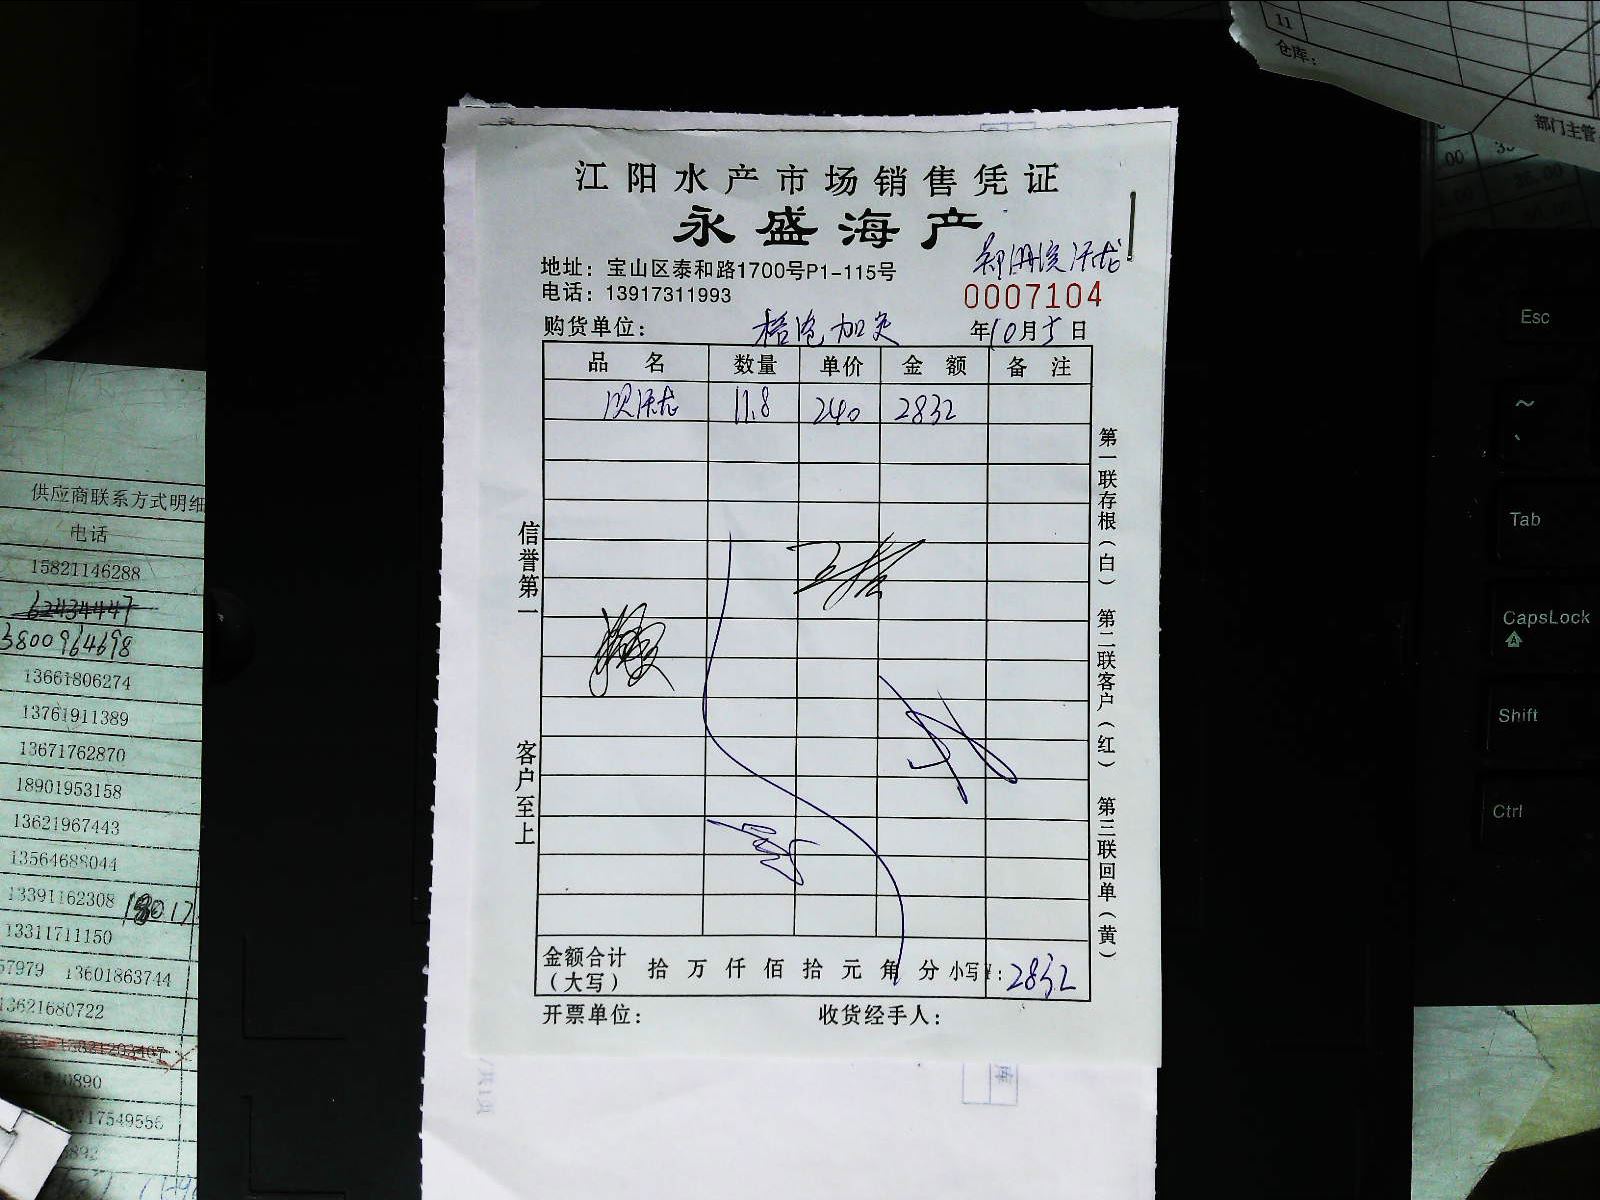 江阳水产市场销售凭证
永盛海产
地址：宝山区泰和路1700号P1-115号
电话：13917311993
0007104
购货单位：
年10月5日
品 名 数量 单价 金 额 备 注
11.8 240 2832
信誉第一
客户至上
第一联存根（白） 第二联客户（红） 第三联回单（黄）
金额合计（大写） 拾 万 仟 佰 拾 元 角 分 小写¥：2832
开票单位： 收货经手人：
供应商联系方式明细
电话
15821146288
62434447
3800964698
13661806274
13761911389
13671762870
18901953158
13621967443
13564688044
13391162308
13311711150
57979 13601863744
13621680722
40890
17549556
11
仓库：
部门主管
Esc
~
Tab
CapsLock
Shift
Ctrl